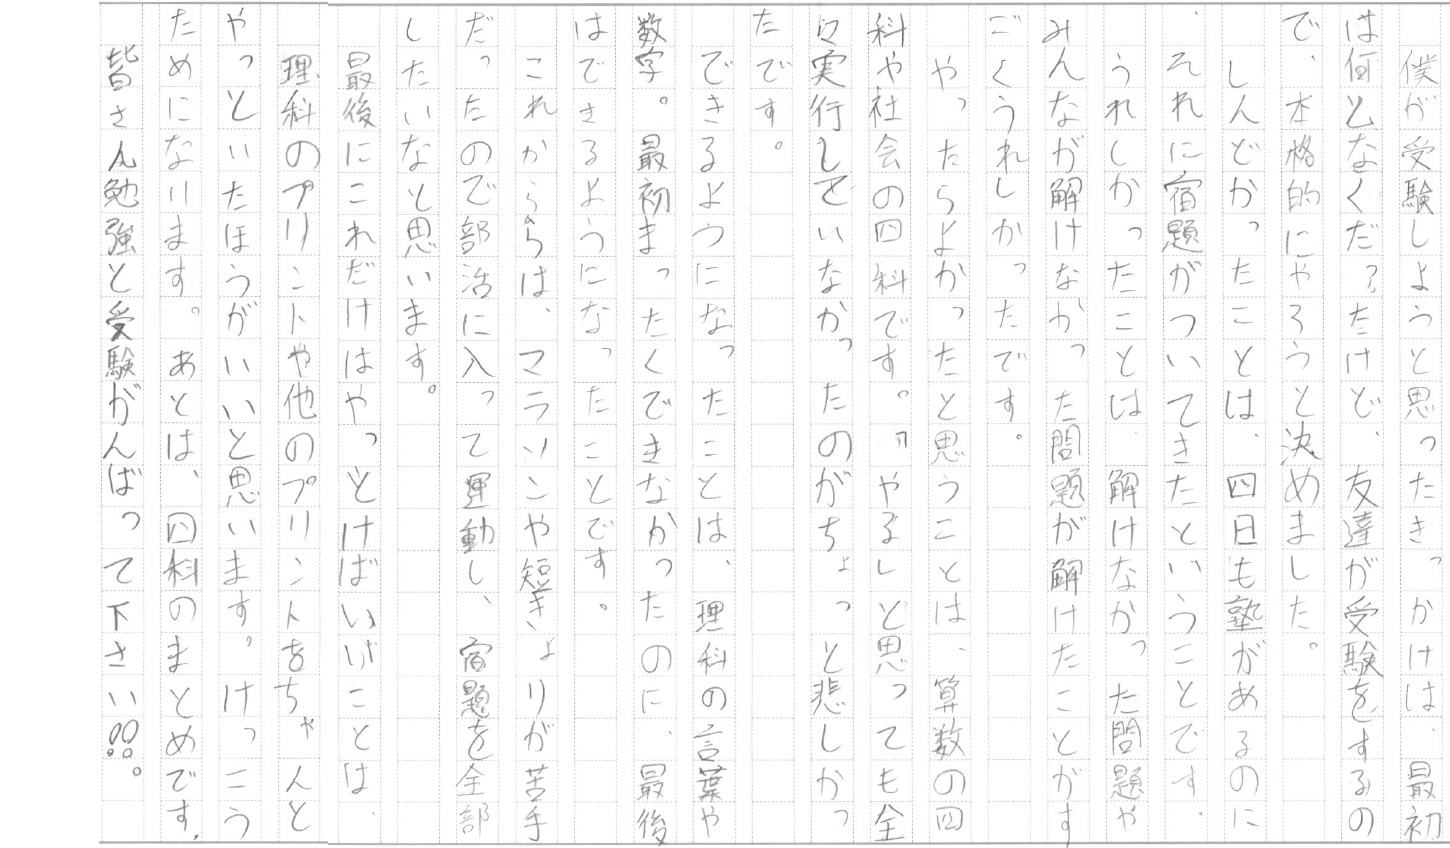 僕が受験しようと思ったきっかけは、最初
は何となくだったけど、友達が受験をするの
で、本格的にやろうと決めました。
しんどかったことは、四日も塾があるのに
、それに宿題がついてきたということです。
うれしかったことは、解けなかった問題や
みんなが解けなかった問題が解けたことがす
ごくうれしかったです。
やったらよかったと思うことは、算数の四
科や社会の四科です。「やる」と思っても全
々実行していなかったのがちょっと悲しかっ
たです。
できるようになったことは、理科の言葉や
数字。最初まったくできなかったのに、最後
はできるようになったことです。
これからは、マラソンや短きょりが苦手
だったので部活に入って運動し、宿題を全部
したいなと思います。
最後にこれだけはやっとけばいいことは、
理科のプリントや他のプリントをちゃんと
やっといたほうがいいと思います。けっこう
ためになります。あとは、四科のまとめです。
皆さん勉強と受験がんばって下さい!!。